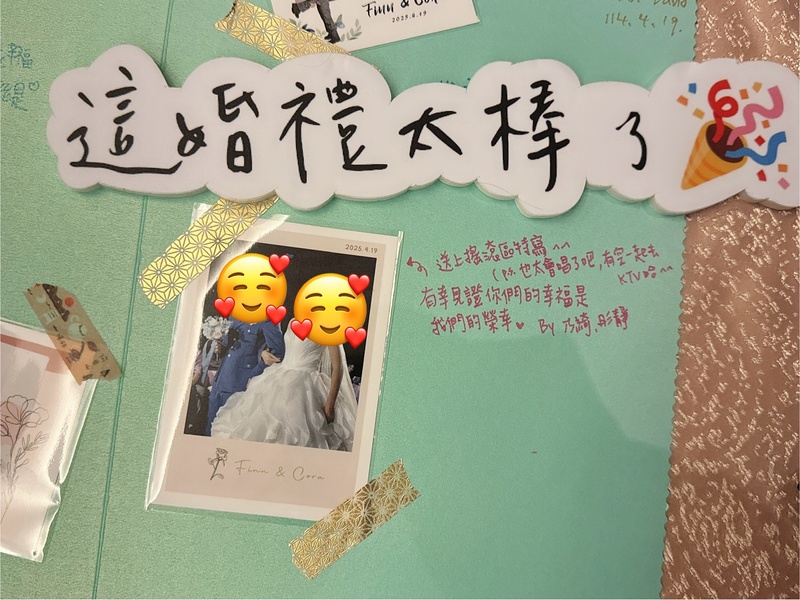 Finn & Cora
2025.4.19
114.4.19.
這婚禮太棒了
2025.4.19
送上搖滾區特寫^^
(P.S. 也太會唱了吧,有空一起去
KTV哈~~
有幸見證你們的幸福是
我們的榮幸♥ By 乃綺.彤靜
Finn & Cora